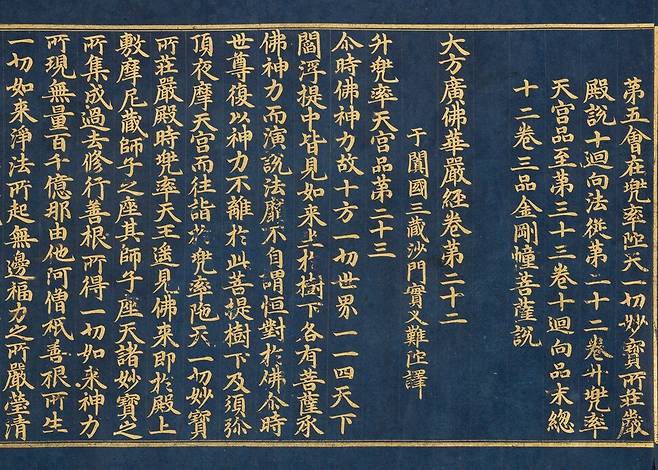 第五會在兜率陁天一切妙寶所莊嚴
殿說十迴向法從第二十二卷升兜率
天宮品至第三十三卷十迴向品末緫
十二卷三品金剛幢菩薩說
大方廣佛華嚴經卷第二十二
于闐國三藏沙門實叉難陁譯
升兜率天宮品第二十三
尒時佛神力故十方一切世界一一四天下
閻浮提中皆見如來坐於樹下各有菩薩承
佛神力而演說法靡不自謂恒對於佛尒時
世尊復以神力不離於此菩提樹下及須弥
頂夜摩天宮而往詣於兜率陁天一切妙寶
所莊嚴殿時兜率天王遙見佛來即於殿上
敷摩尼藏師子之座其師子座天諸妙寶之
所集成過去修行善根所得一切如來神力
所現無量百千憶那由他阿僧祇善根所生
一切如來淨法所起無邊福力之所嚴瑩清